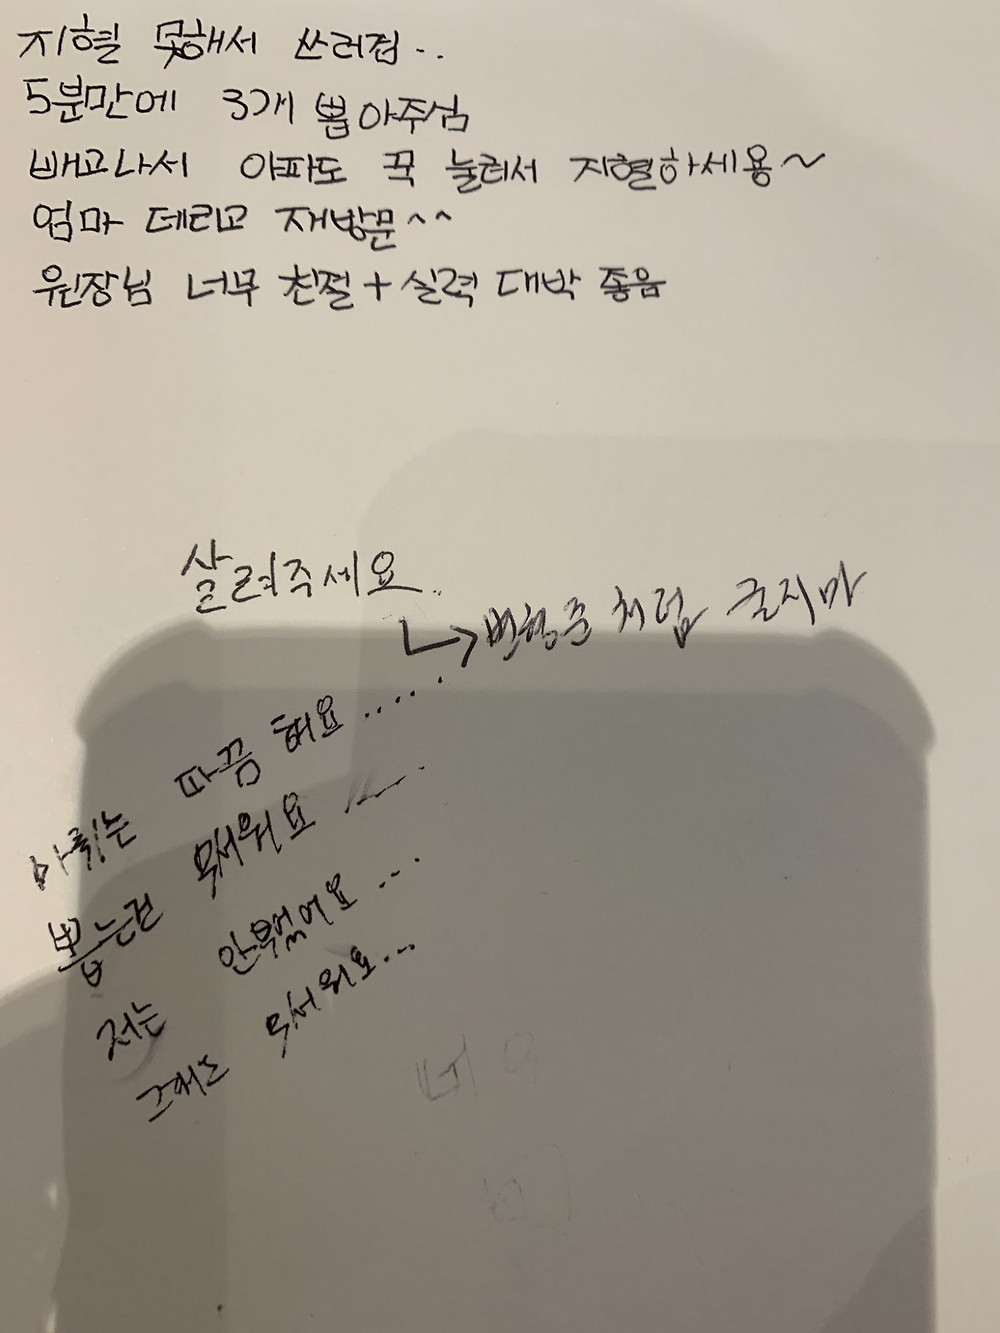 지혈 못해서 쓰러짐..
5분만에 3개 뽑아주심
빼고나서 아파도 꾹 눌러서 지혈하세용~
엄마 데리고 재방문^^
원장님 너무 친절+실력 대박 좋음
살려주세요..
↳ 변형준처럼 굴지마
마취는 따끔 해요.....
뽑는건 무서워요....
저는 안무섭어요...
그래도 무서워요...